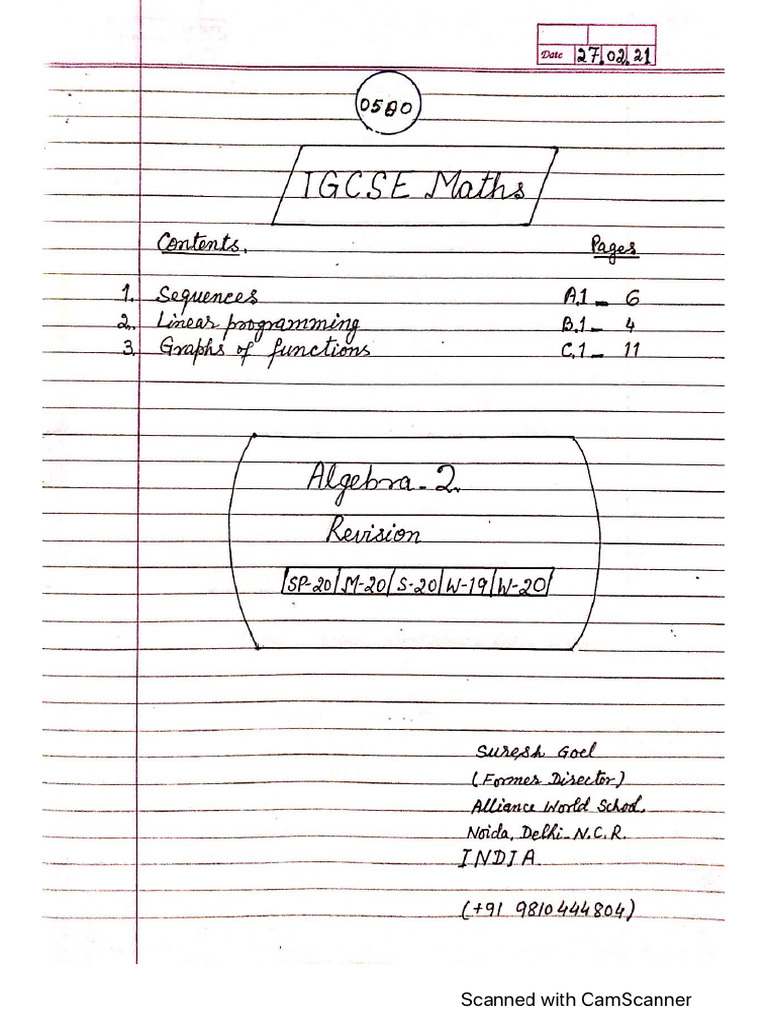 Date 27.02.21
0580
IGCSE Maths
Contents. Pages
1. Sequences A.1 - 6
2. Linear programming B.1 - 4
3. Graphs of functions C.1 - 11
Algebra-2.
Revision
SP-20 M-20 S-20 W-19 W-20
Suresh Goel
(Former Director)
Alliance World School,
Noida, Delhi-N.C.R.
INDIA
(+91 9810444804)
Scanned with CamScanner